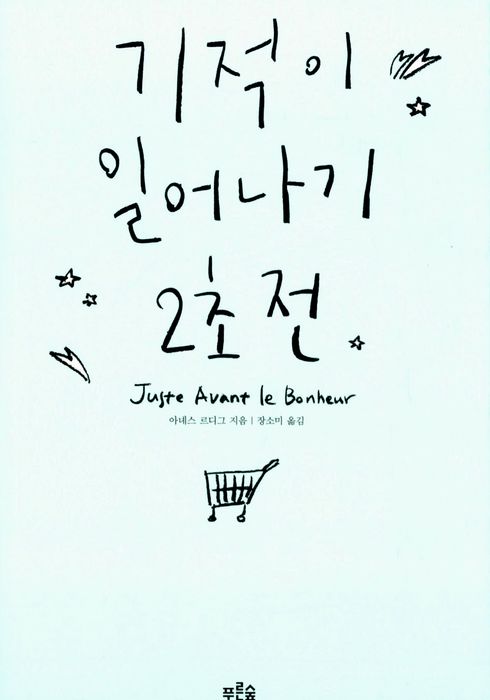 기적이
일어나기
2초 전
Juste Avant le Bonheur
아녜스 르디그 지음 | 장소미 옮김
푸른숲